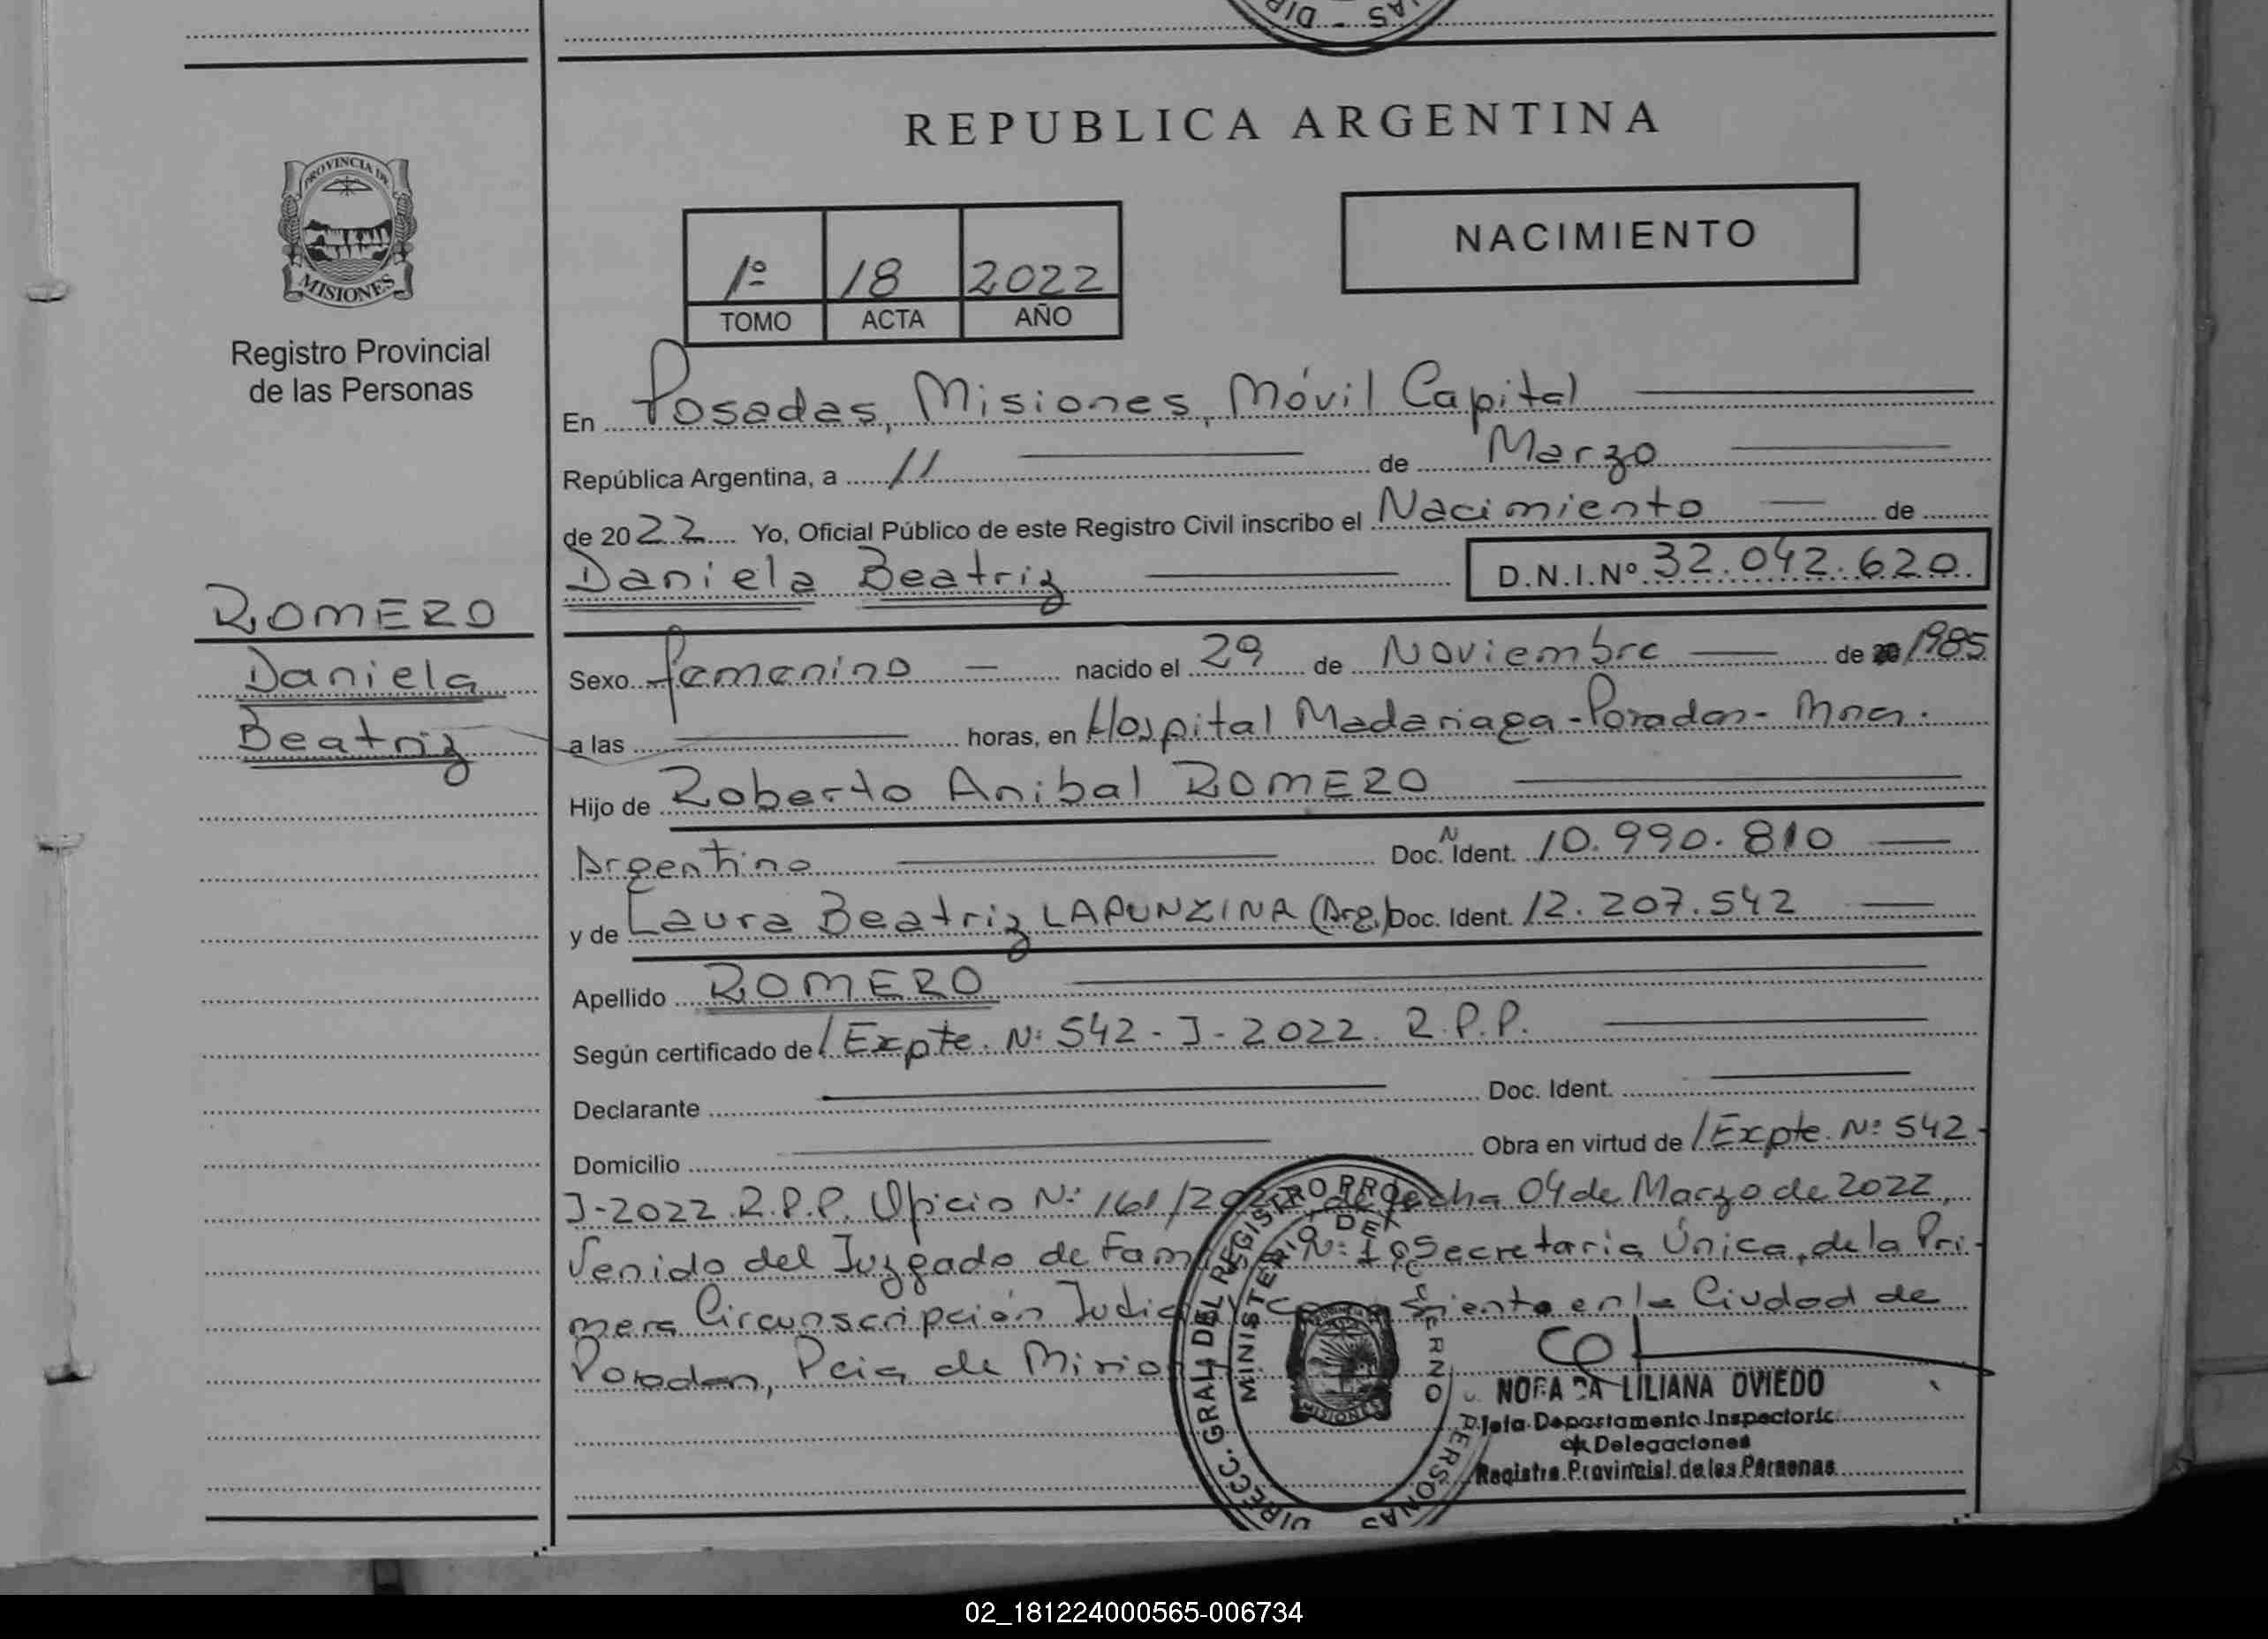 DIR - AS
REPUBLICA ARGENTINA
PROVINCIA DE
MISIONES
Registro Provincial
de las Personas
1º 18 2022
TOMO ACTA AÑO
NACIMIENTO
En Posadas, Misiones, Móvil Capital
República Argentina, a 11 de Marzo
de 2022 Yo, Oficial Público de este Registro Civil inscribo el Nacimiento de
Daniela Beatriz D.N.I.Nº 32.042.620
ROMERO
Daniela
Beatriz
Sexo femenino nacido el 29 de Noviembre de 1985
a las horas, en Hospital Madariaga - Posadas - Mnes.
Hijo de Roberto Anibal ROMERO
Argentino Doc. N Ident. 10.990.810
y de Laura Beatriz LAPUNZINA (Arg.) Doc. Ident. 12.207.542
Apellido ROMERO
Según certificado de / Expte. Nº 542 - J - 2022. R.P.P.
Declarante Doc. Ident.
Domicilio Obra en virtud de / Expte. Nº 542 -
J-2022 R.P.P. Oficio Nº 161/ de fecha 04 de Marzo de 2022,
Venido del Juzgado de Nº 1 Secretaria Única, de la Pri-
mera Circunscripción en la Ciudad de
Posadas, Pcia de
DIRECC. GRAL. DEL REGISTRO PERSONAS
MINISTERIO DE
MISIONES
LILIANA OVIEDO
Jefa Departamento Inspectoria
de Delegaciones
Registro Provincial de las Personas
02_181224000565-006734